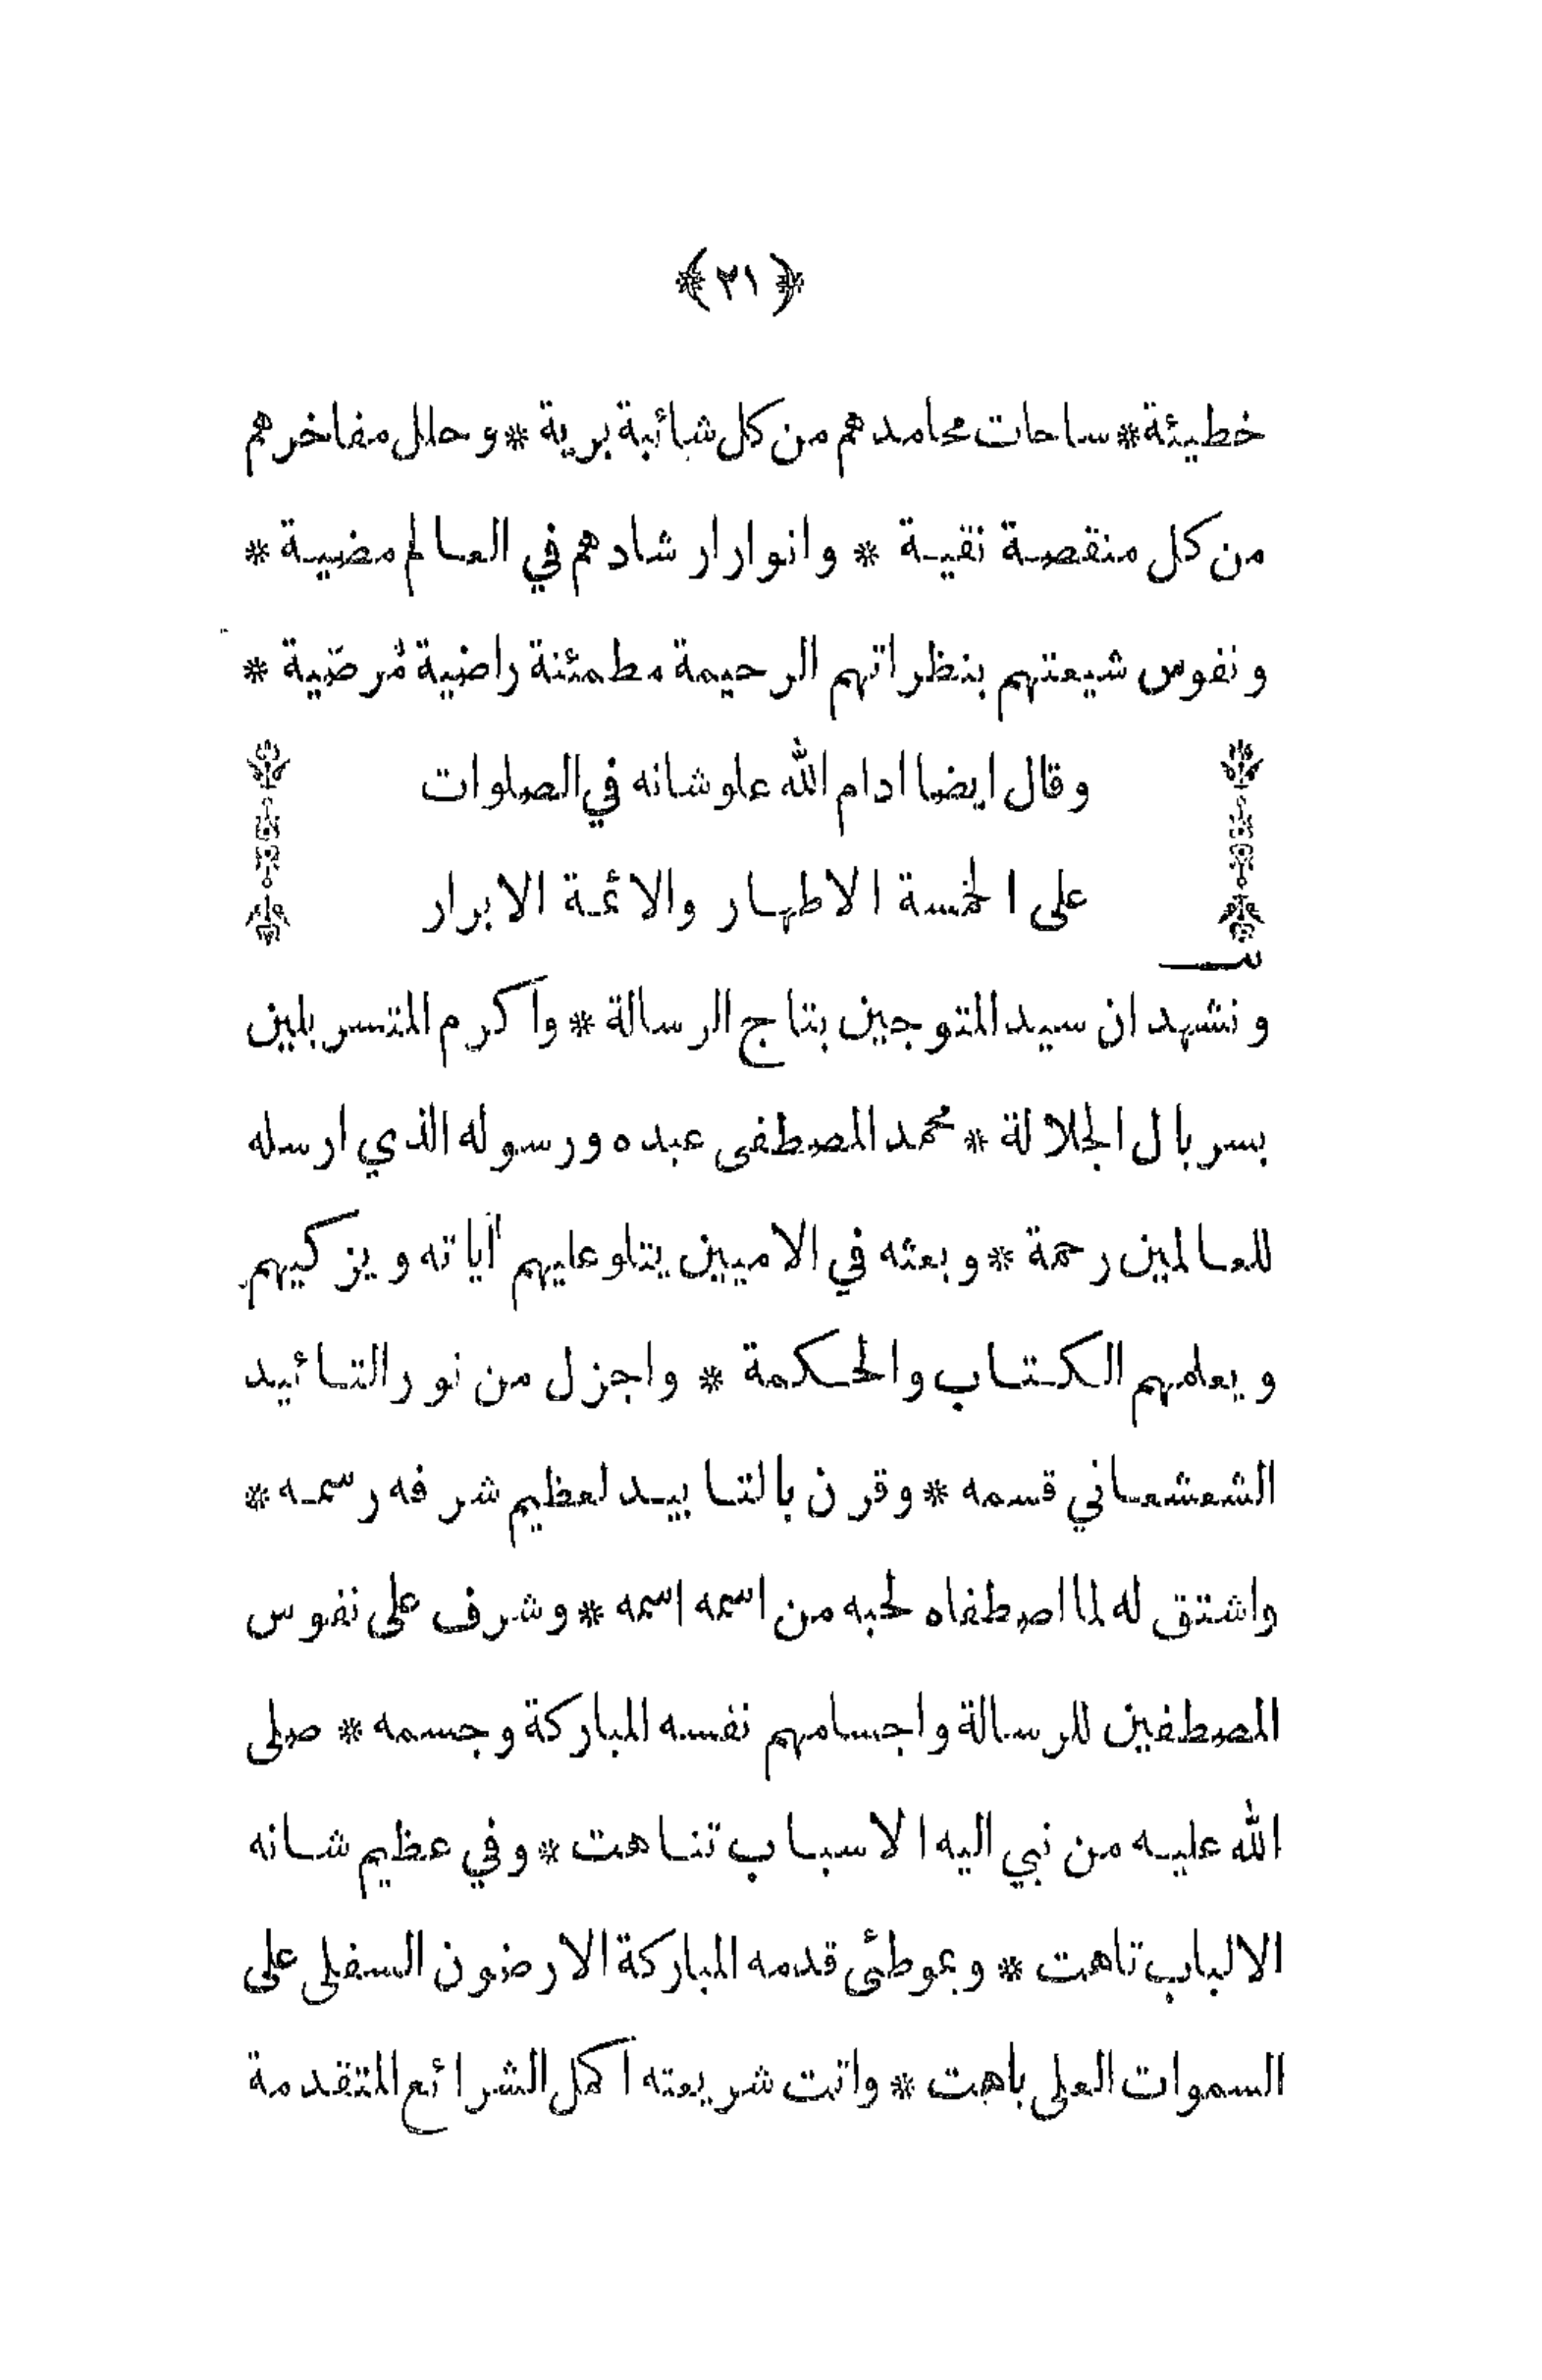 ﴿٢١﴾
خطيئة * ساحات محامدهم من كل شائبة برية * وحلل مفاخرهم
من كل منقصة نقية * وانوار ارشادهم في العالم مضية *
ونفوس شيعتهم بنظراتهم الرحيمة مطمئنة راضية مُرضّية *
وقال ايضا ادام الله علو شانه في الصلوات
على الخمسة الاطهار والائمة الابرار
ونشهد ان سيد المتوجين بتاج الرسالة * واكرم المتسربلين
بسربال الجلالة * محمد المصطفى عبده ورسوله الذي ارسله
للعالمين رحمة * وبعثه في الاميين يتلو عليهم آياته ويزكيهم
ويعلمهم الكتاب والحكمة * واجزل من نور التائيد
الشعشعاني قسمه * وقرن بالتاييد لعظيم شرفه رسمه *
واشتق له لما اصطفاه لحبه من اسمه اسمه * وشرف على نفوس
المصطفين للرسالة واجسامهم نفسه المباركة وجسمه * صلى
الله عليه من نبي اليه الاسباب تناهت * وفي عظيم شانه
الالباب تاهت * وبموطئى قدمه المباركة الارضون السفلى على
السموات العلى باهت * واتت شريعته اكمل الشرائع المتقدمة